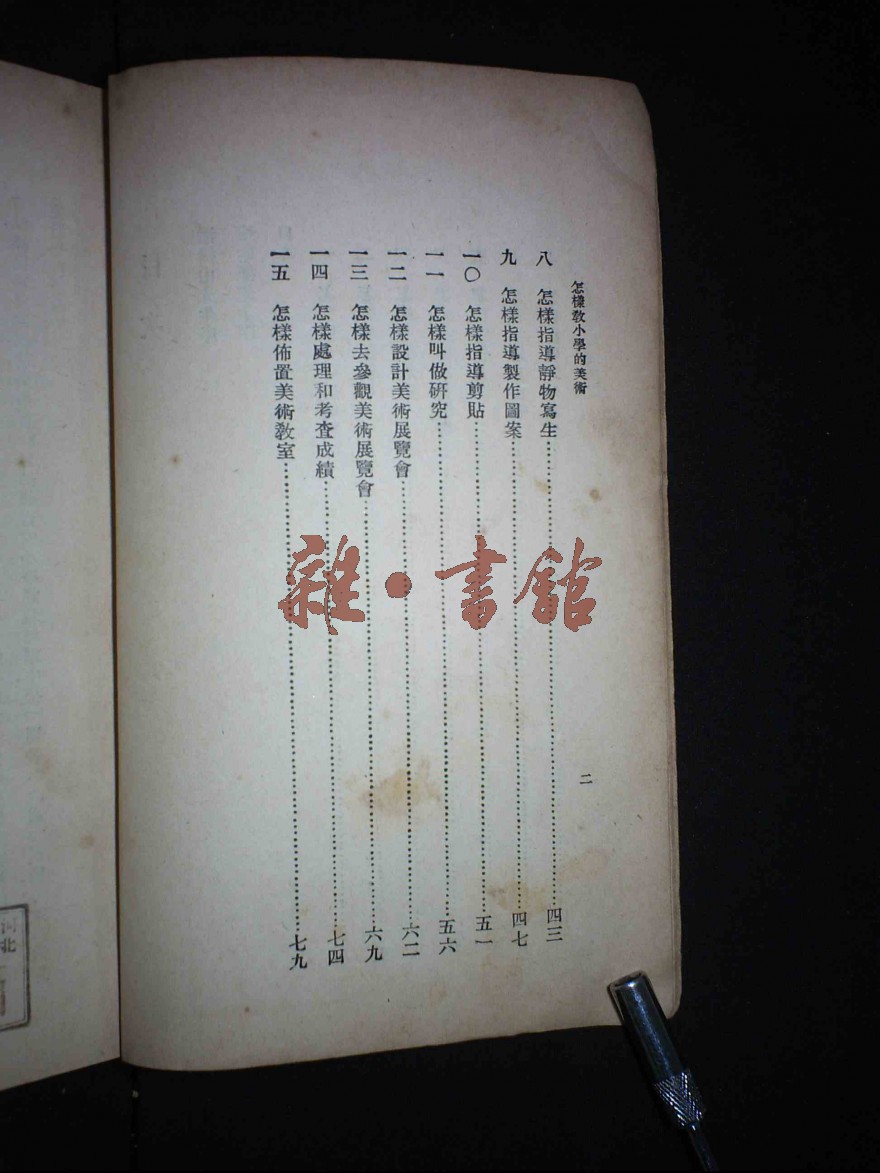 怎樣教小學的美術
二
八 怎樣指導靜物寫生……四三
九 怎樣指導製作圖案……四七
一〇 怎樣指導剪貼……五一
一一 怎樣叫做研究……五六
一二 怎樣設計美術展覽會……六二
一三 怎樣去參觀美術展覽會……六九
一四 怎樣處理和考查成績……七四
一五 怎樣佈置美術教室……七九
雜·書館
河北